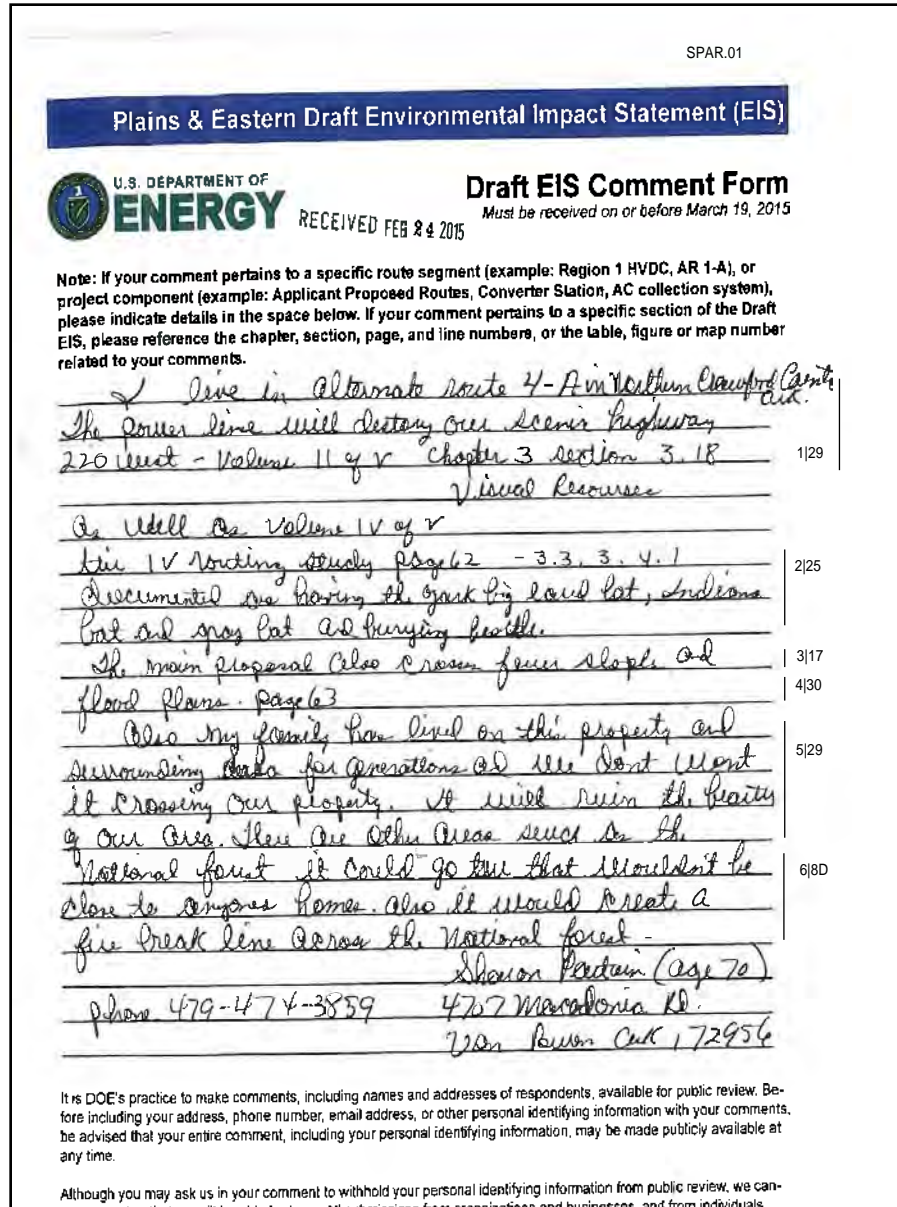 SPAR.01
Plains & Eastern Draft Environmental Impact Statement (EIS)
U.S. DEPARTMENT OF
ENERGY
RECEIVED FEB 24 2015
Draft EIS Comment Form
Must be received on or before March 19, 2015
Note: If your comment pertains to a specific route segment (example: Region 1 HVDC, AR 1-A), or
project component (example: Applicant Proposed Routes, Converter Station, AC collection system),
please indicate details in the space below. If your comment pertains to a specific section of the Draft
EIS, please reference the chapter, section, page, and line numbers, or the table, figure or map number
related to your comments.
I live in alternate route 4-A in Northern Crawford County
Ark.
The power line will destory our scenic highway
220 West - Volume II of V Chapter 3 section 3.18
1|29
Visual Resourses
As Well as Volume IV of V
IV routing study page 62 - 3.3.3.4.1
2|25
documented are having the Ozark big eared bat, Indiana
bat and gray bat and burying beatle.
The main proposal also crosses fewer slopes and
3|17
flood plains. page 63
4|30
Also my family has lived on this property and
5|29
surrounding for generations and we dont want
it crossing our property. It will ruin the beauty
of our area. There are other areas such as the
National forest it could go thru that wouldn't be
6|8D
close to anyones homes. also it would create a
fire break line across the National forest -
Sharon (age 70)
phone 479-474-3859
4707 Macadonia Rd.
Van Buren Ark, 72956
It is DOE's practice to make comments, including names and addresses of respondents, available for public review. Be-
fore including your address, phone number, email address, or other personal identifying information with your comments,
be advised that your entire comment, including your personal identifying information, may be made publicly available at
any time.
Although you may ask us in your comment to withhold your personal identifying information from public review, we can-